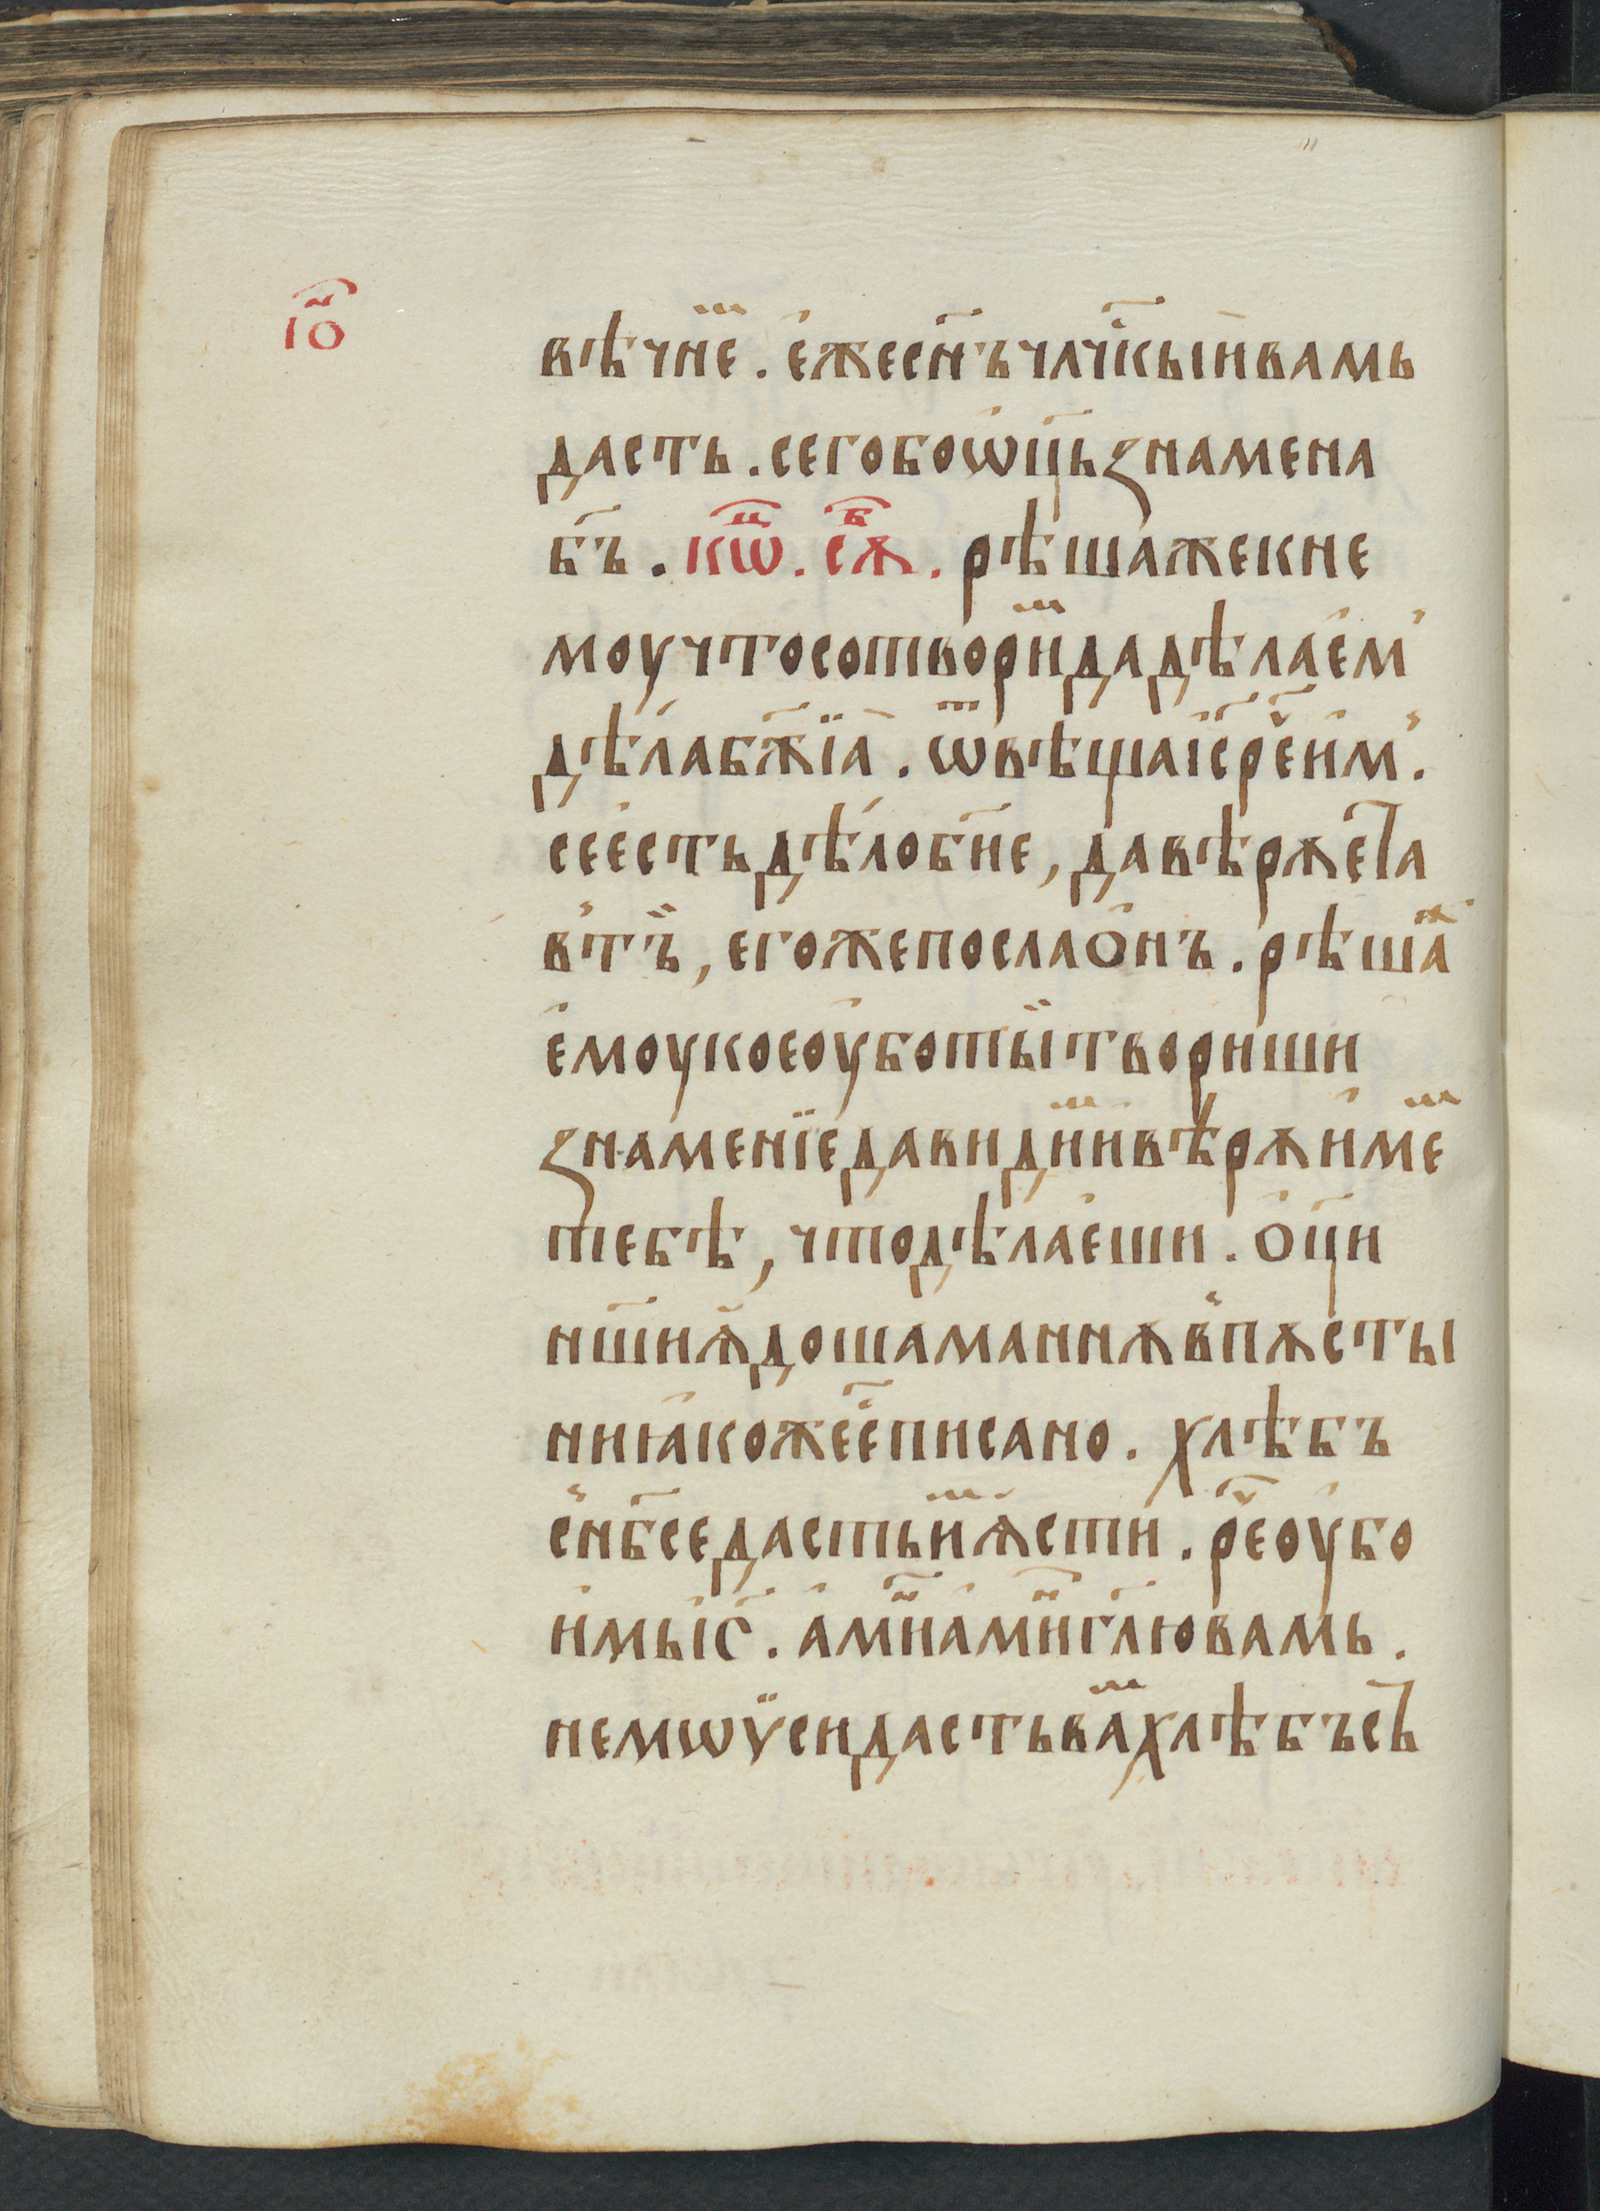 іо҃н
вѣчнѣⷨе . е҆жесн҃ъчл҃чкыи҆вамь
дасть . сегобоѡ҆ц҃ьꙁнамена
б҃ъ . кѡⷰ҇ . сѫⷠ҇ . рѣшажекне
моучтосотвориⷨдадѣлае҆м̾
дѣ́лабж҃їа̀ . ѿвѣщаі҆с҃рече҃и҆м̾ .
сее҆стьдѣ́лобж҃їе , давѣрꙋетⷷа
в̾тъ̏ , егожепослао҆нъ . рѣшаⷤ
е҆моукоеоу҆ботыи҆твориши
ꙁнаменїедавидиⷨи҆вѣ́рѫи҆меⷨ
тебѣ , чтодѣлае҆ши . о҆ци
нш҃иꙗ҆дошаманнѫв̾пѫсты
ниꙗ҆кожее҆с҃писано . хлѣбъ
с̾нб҃седастьиⷨꙗ҆сти . рече҃оу҆бо
и҆мьі҆с҃ . а҆миⷩ҇а҆миⷩ҇гл҃ювамь .
немѡѵ̈сидастьваⷨхлѣбъсъ